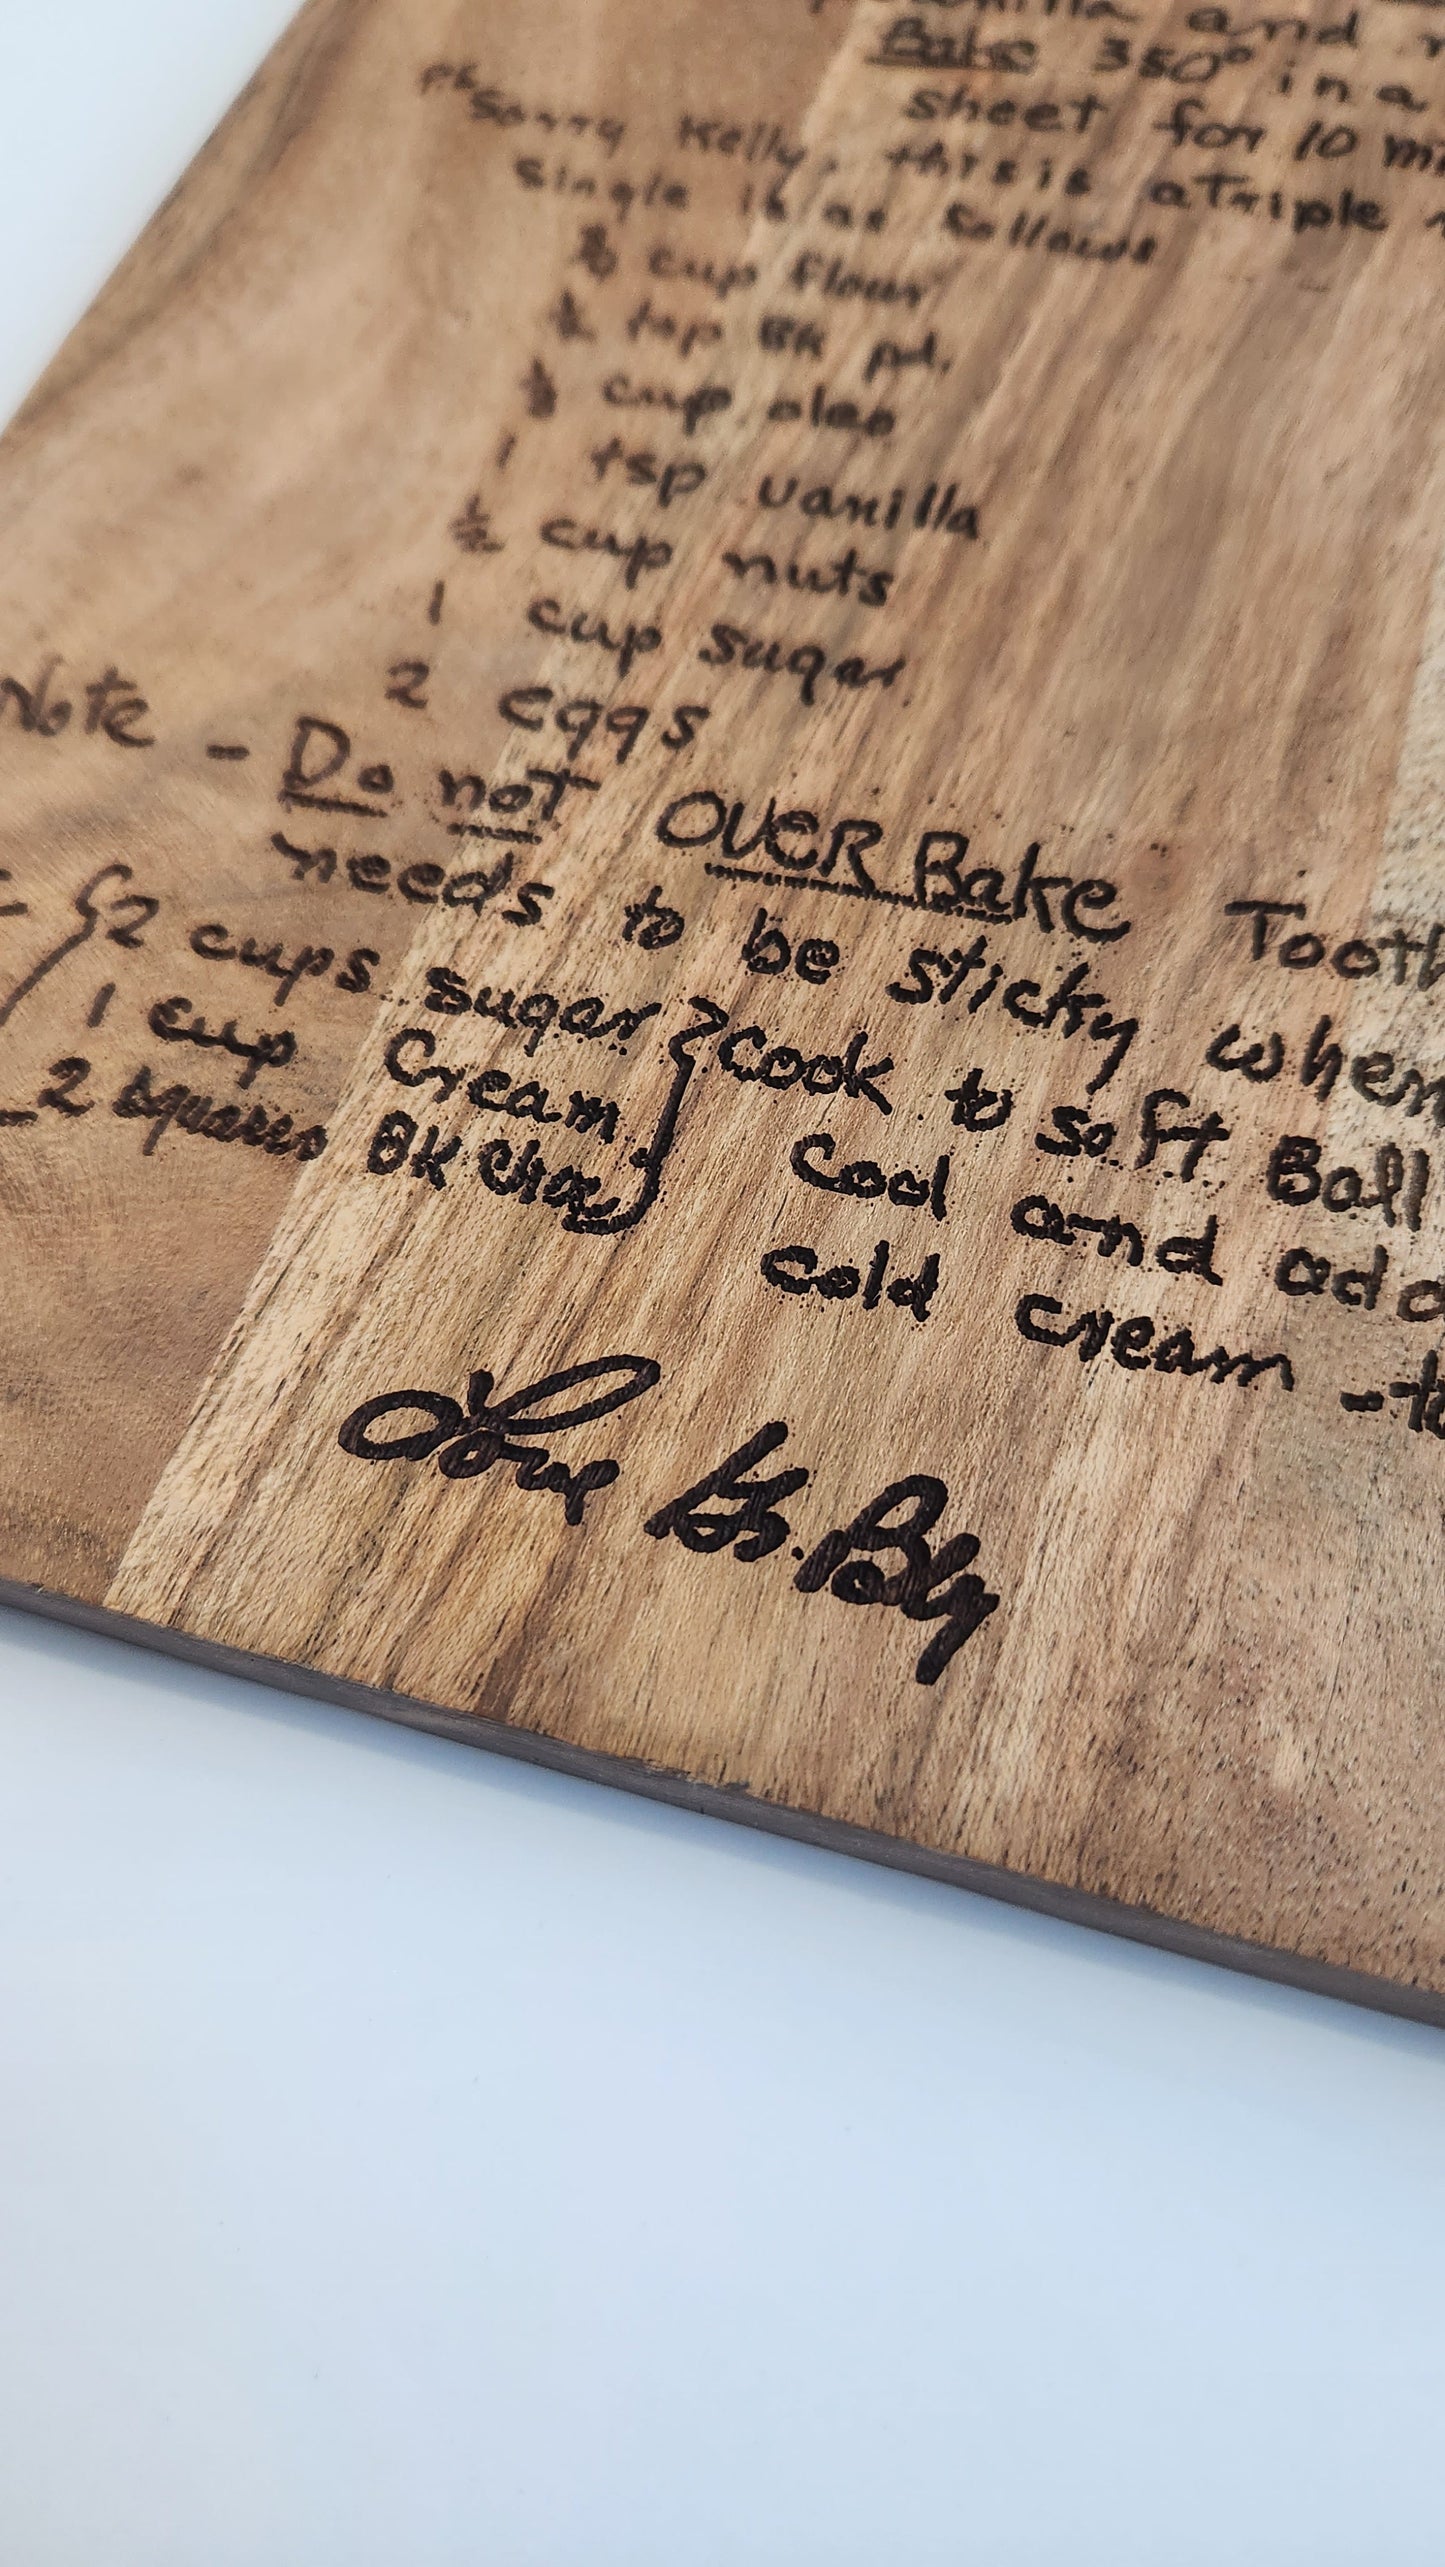 and
Bake 350° in a
sheet for 10
Sorry Kelly, this is a Triple
Single is as follows
cup flour
tsp BK pd.
cup oleo
1 tsp vanilla
½ cup nuts
1 cup sugar
2 eggs
Note - Do not OVER Bake
needs to be sticky when
2 cups sugar } cook to soft Ball
1 cup Cream cool and add
2 squares BK Choc cold cream -
Love